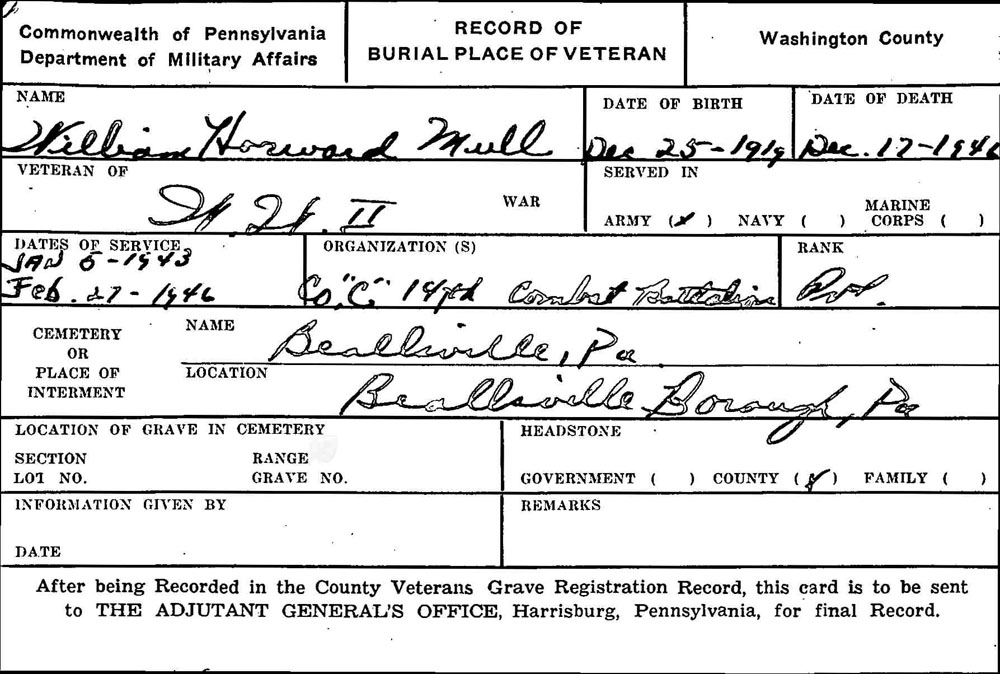 Commonwealth of Pennsylvania
Department of Military Affairs
RECORD OF
BURIAL PLACE OF VETERAN
Washington County
NAME
William Horward Mull
DATE OF BIRTH
Dec 25-1919
DATE OF DEATH
Dec. 17-1946
VETERAN OF
W.W. II WAR
SERVED IN
ARMY (x) NAVY ( ) MARINE CORPS ( )
DATES OF SERVICE
JAN 5-1943
Feb. 27-1946
ORGANIZATION (S)
Co. "C" Combat Battalion
RANK
Pvt.
CEMETERY
OR
PLACE OF
INTERMENT
NAME
Beallsville, Pa
LOCATION
Beallsville Borough, Pa
LOCATION OF GRAVE IN CEMETERY
SECTION RANGE
LOT NO. GRAVE NO.
HEADSTONE
GOVERNMENT ( ) COUNTY (x) FAMILY ( )
INFORMATION GIVEN BY
DATE
REMARKS
After being Recorded in the County Veterans Grave Registration Record, this card is to be sent
to THE ADJUTANT GENERAL'S OFFICE, Harrisburg, Pennsylvania, for final Record.